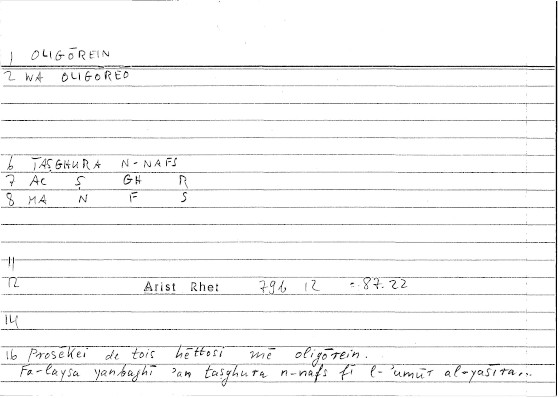 1 OLIGŌREIN
2 WA OLIGŌREO
6 TAṢGHURA N-NAFS
7 AC Ṣ GH R
8 MA N F S
11
12 Arist Rhet 79b 12 = 87.22
14
16 Prosēkei de tois hēttosi mē oligōrein.
Fa-laysa yanbaghī 'an taṣghura n-nafs fī l-'umūr al-yasīra...